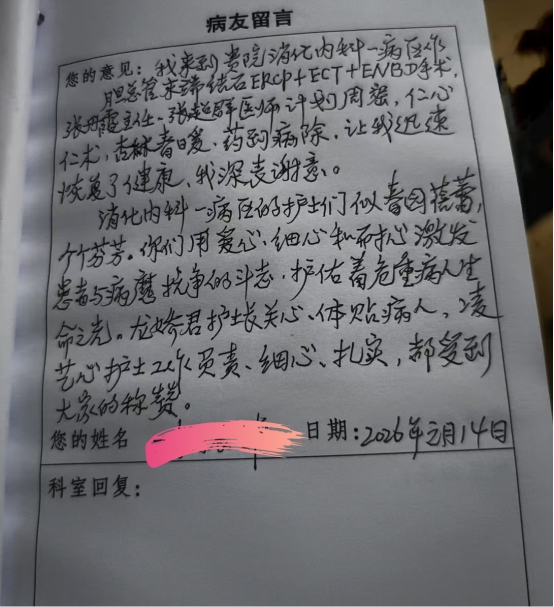 病友留言
您的意见：我来到贵院消化内科一病区作
胆总管末端结石ERCP+ECT+ENBD手术，
张丹霞主任、张超群医师计划周密，仁心
仁术，杏林春暖，药到病除，让我迅速
恢复了健康，我深表谢意。
消化内科一病区的护士们似春园蓓蕾，
个个芬芳。你们用爱心、细心和耐心激发
患者与病魔抗争的斗志，护佑着危重病人生
命之光。尤娇君护士长关心、体贴病人，凌
艺心护士工作负责、细心、扎实，都受到
大家的称赞。
您的姓名 日期：2026年2月14日
科室回复：